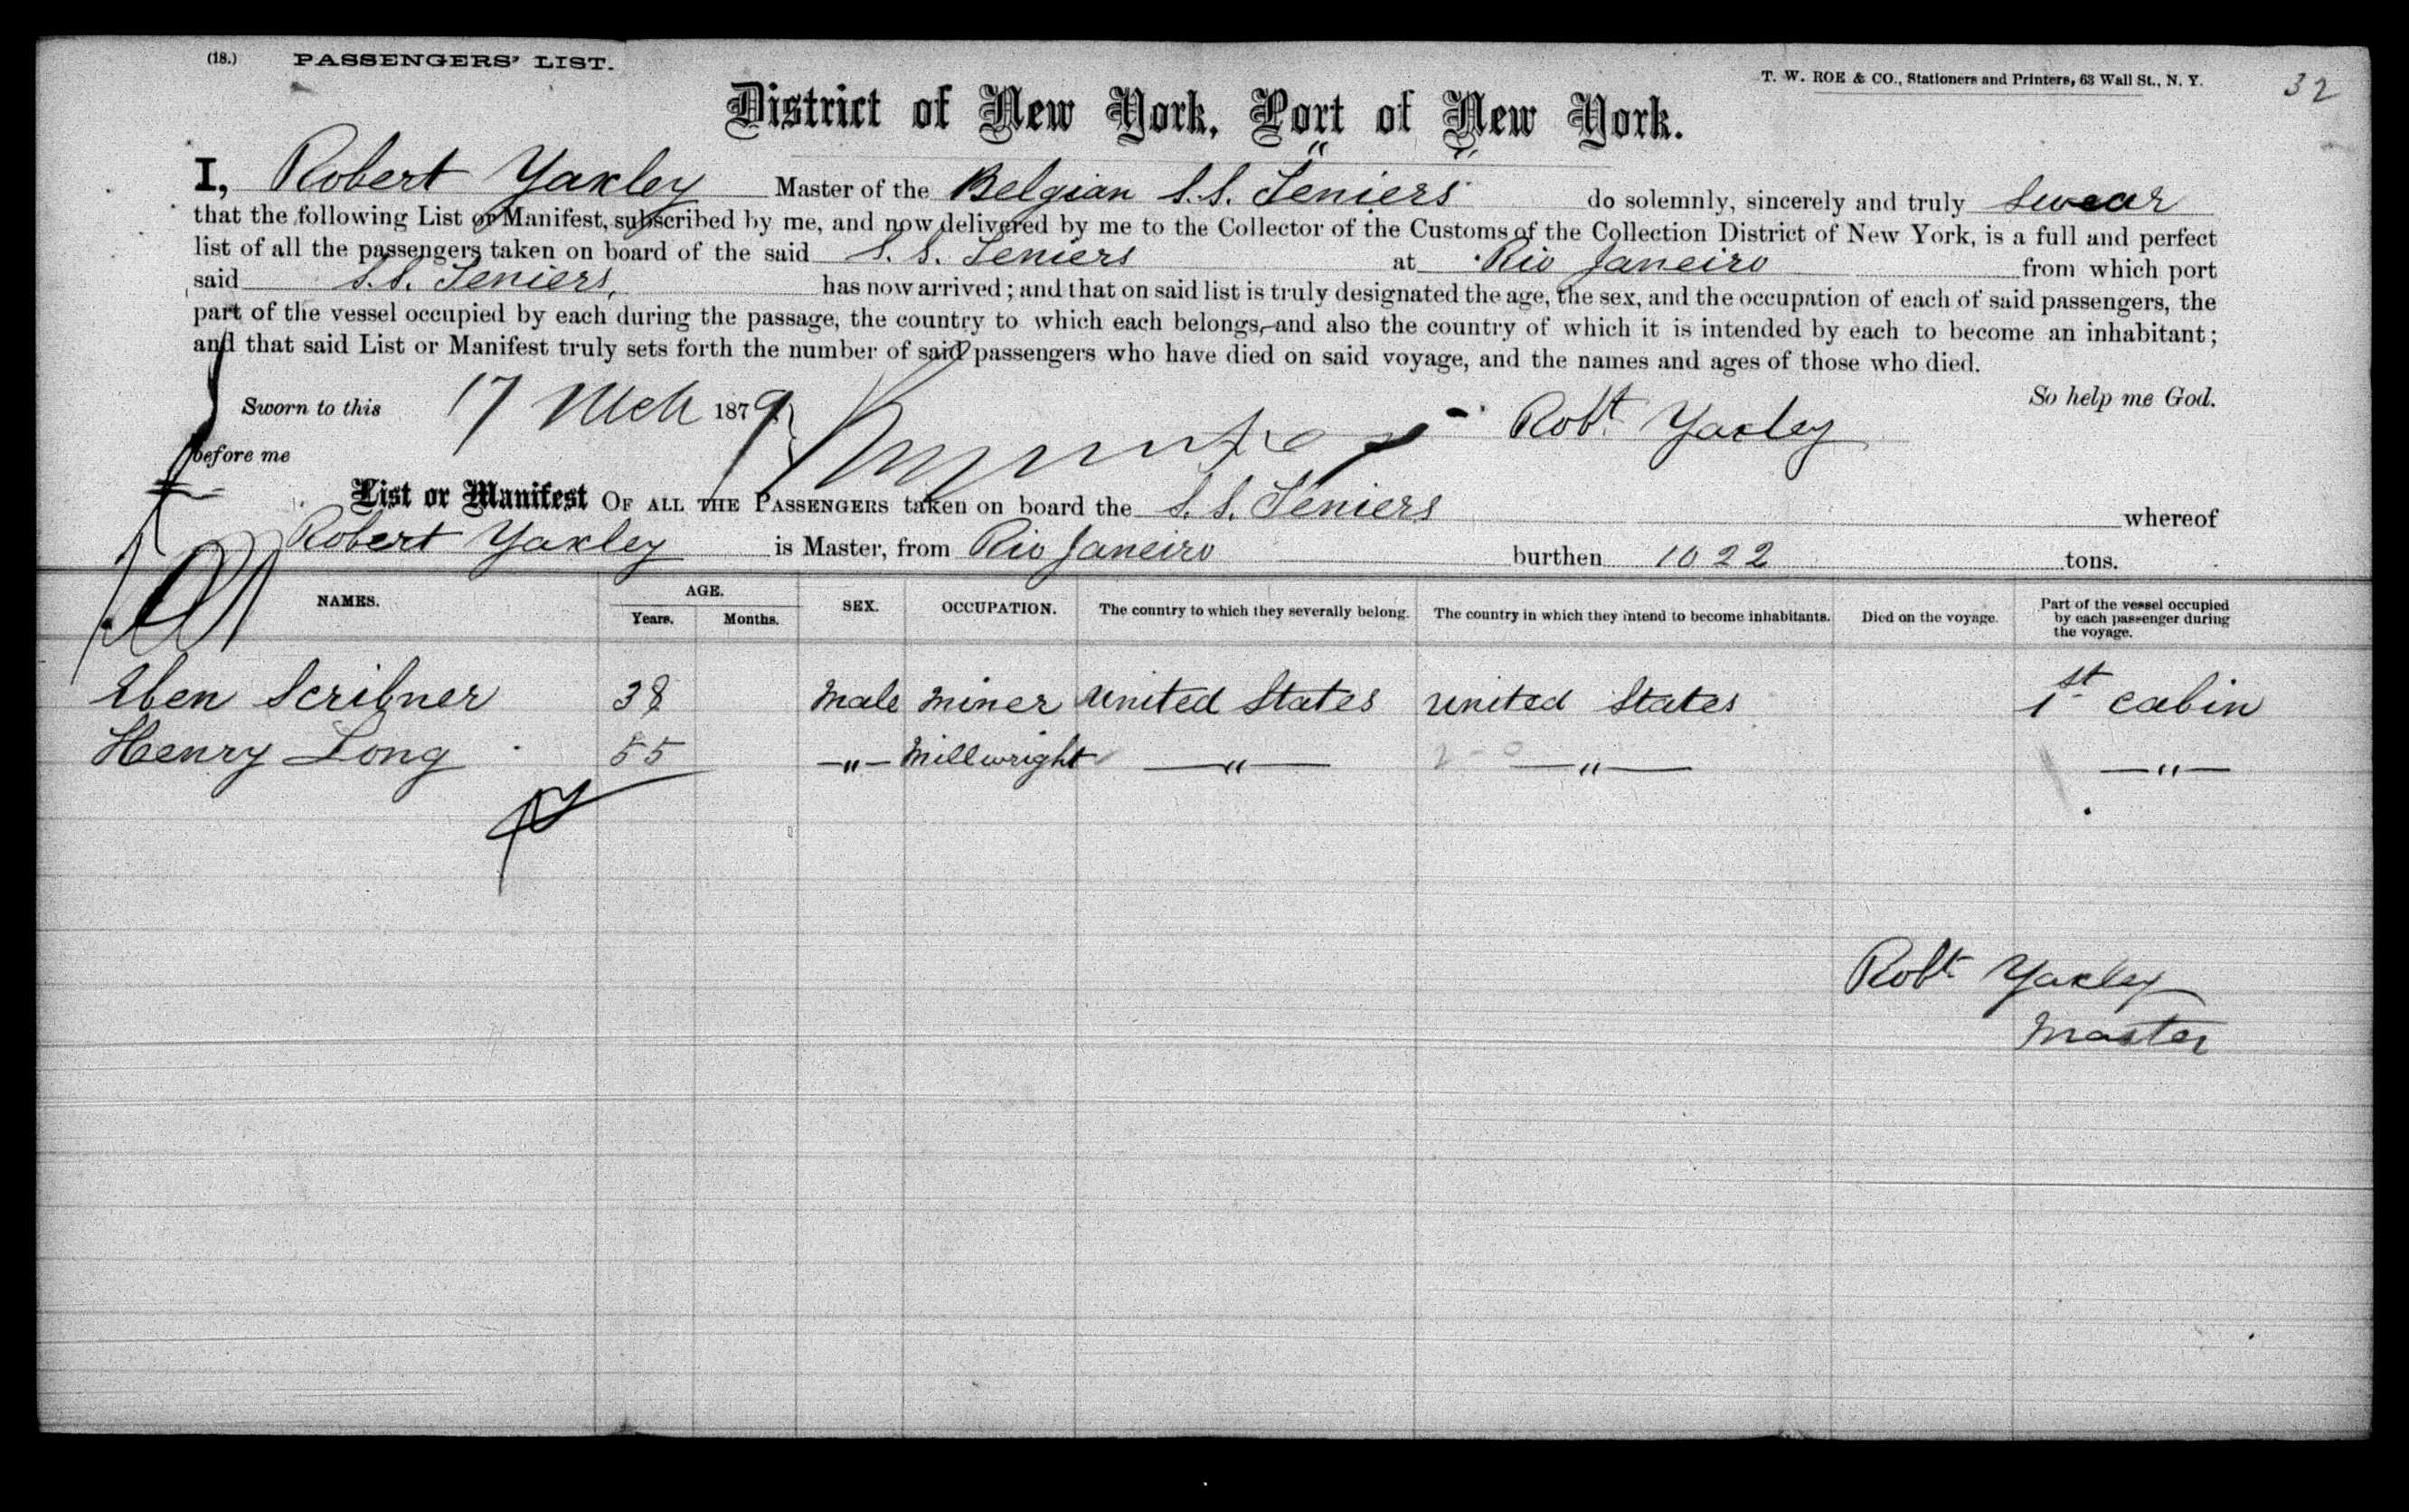 (18.) PASSENGERS' LIST.
T. W. ROE & CO., Stationers and Printers, 63 Wall St., N. Y.
32
District of New York, Port of New York.
I, Robert Yaxley Master of the Belgian S.S. "Teniers" do solemnly, sincerely and truly swear
that the following List or Manifest, subscribed by me, and now delivered by me to the Collector of the Customs of the Collection District of New York, is a full and perfect
list of all the passengers taken on board of the said S. S. Teniers at Rio Janeiro from which port
said S.S. Teniers, has now arrived; and that on said list is truly designated the age, the sex, and the occupation of each of said passengers, the
part of the vessel occupied by each during the passage, the country to which each belongs, and also the country of which it is intended by each to become an inhabitant;
and that said List or Manifest truly sets forth the number of said passengers who have died on said voyage, and the names and ages of those who died.
So help me God.
Sworn to this 17 Mch 1879 Robt. Yaxley
before me
List or Manifest OF ALL THE PASSENGERS taken on board the S. S. Teniers whereof
Robert Yaxley is Master, from Rio Janeiro burthen 1022 tons.
NAMES. AGE. Years. Months. SEX. OCCUPATION. The country to which they severally belong. The country in which they intend to become inhabitants. Died on the voyage. Part of the vessel occupied by each passenger during the voyage.
Eben Scribner 38 Male Miner United States United States 1st cabin
Henry Long 55 —"— Millwright —"— —"— —"—
Robt. Yaxley
Master